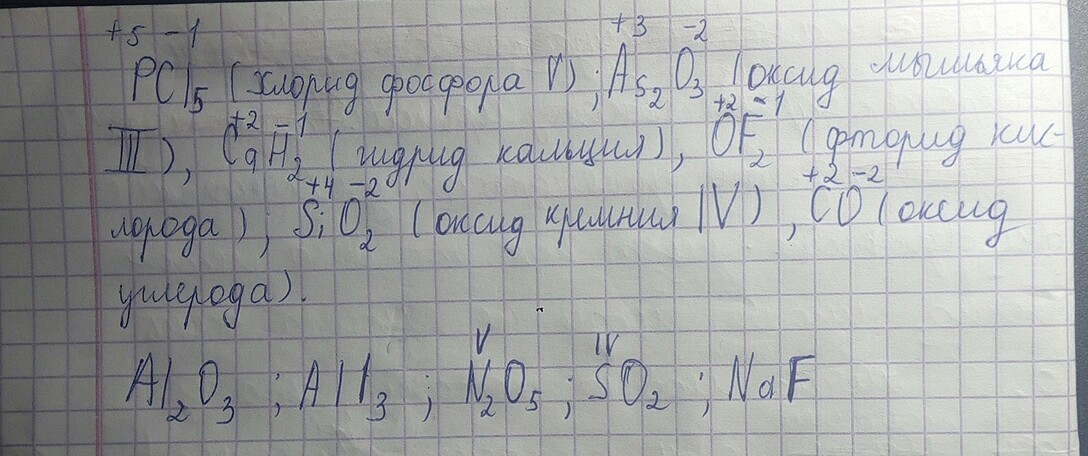 +5 -1 +3 -2
PCl5 (хлорид фосфора V); As2O3 (оксид мышьяка
+2 -1 +2 -1
III), CaH2 (гидрид кальция), OF2 (фторид кис-
+4 -2 +2 -2
лорода); SiO2 (оксид кремния IV), CO (оксид
углерода).
V IV
Al2O3; AlI3; N2O5; SO2; NaF